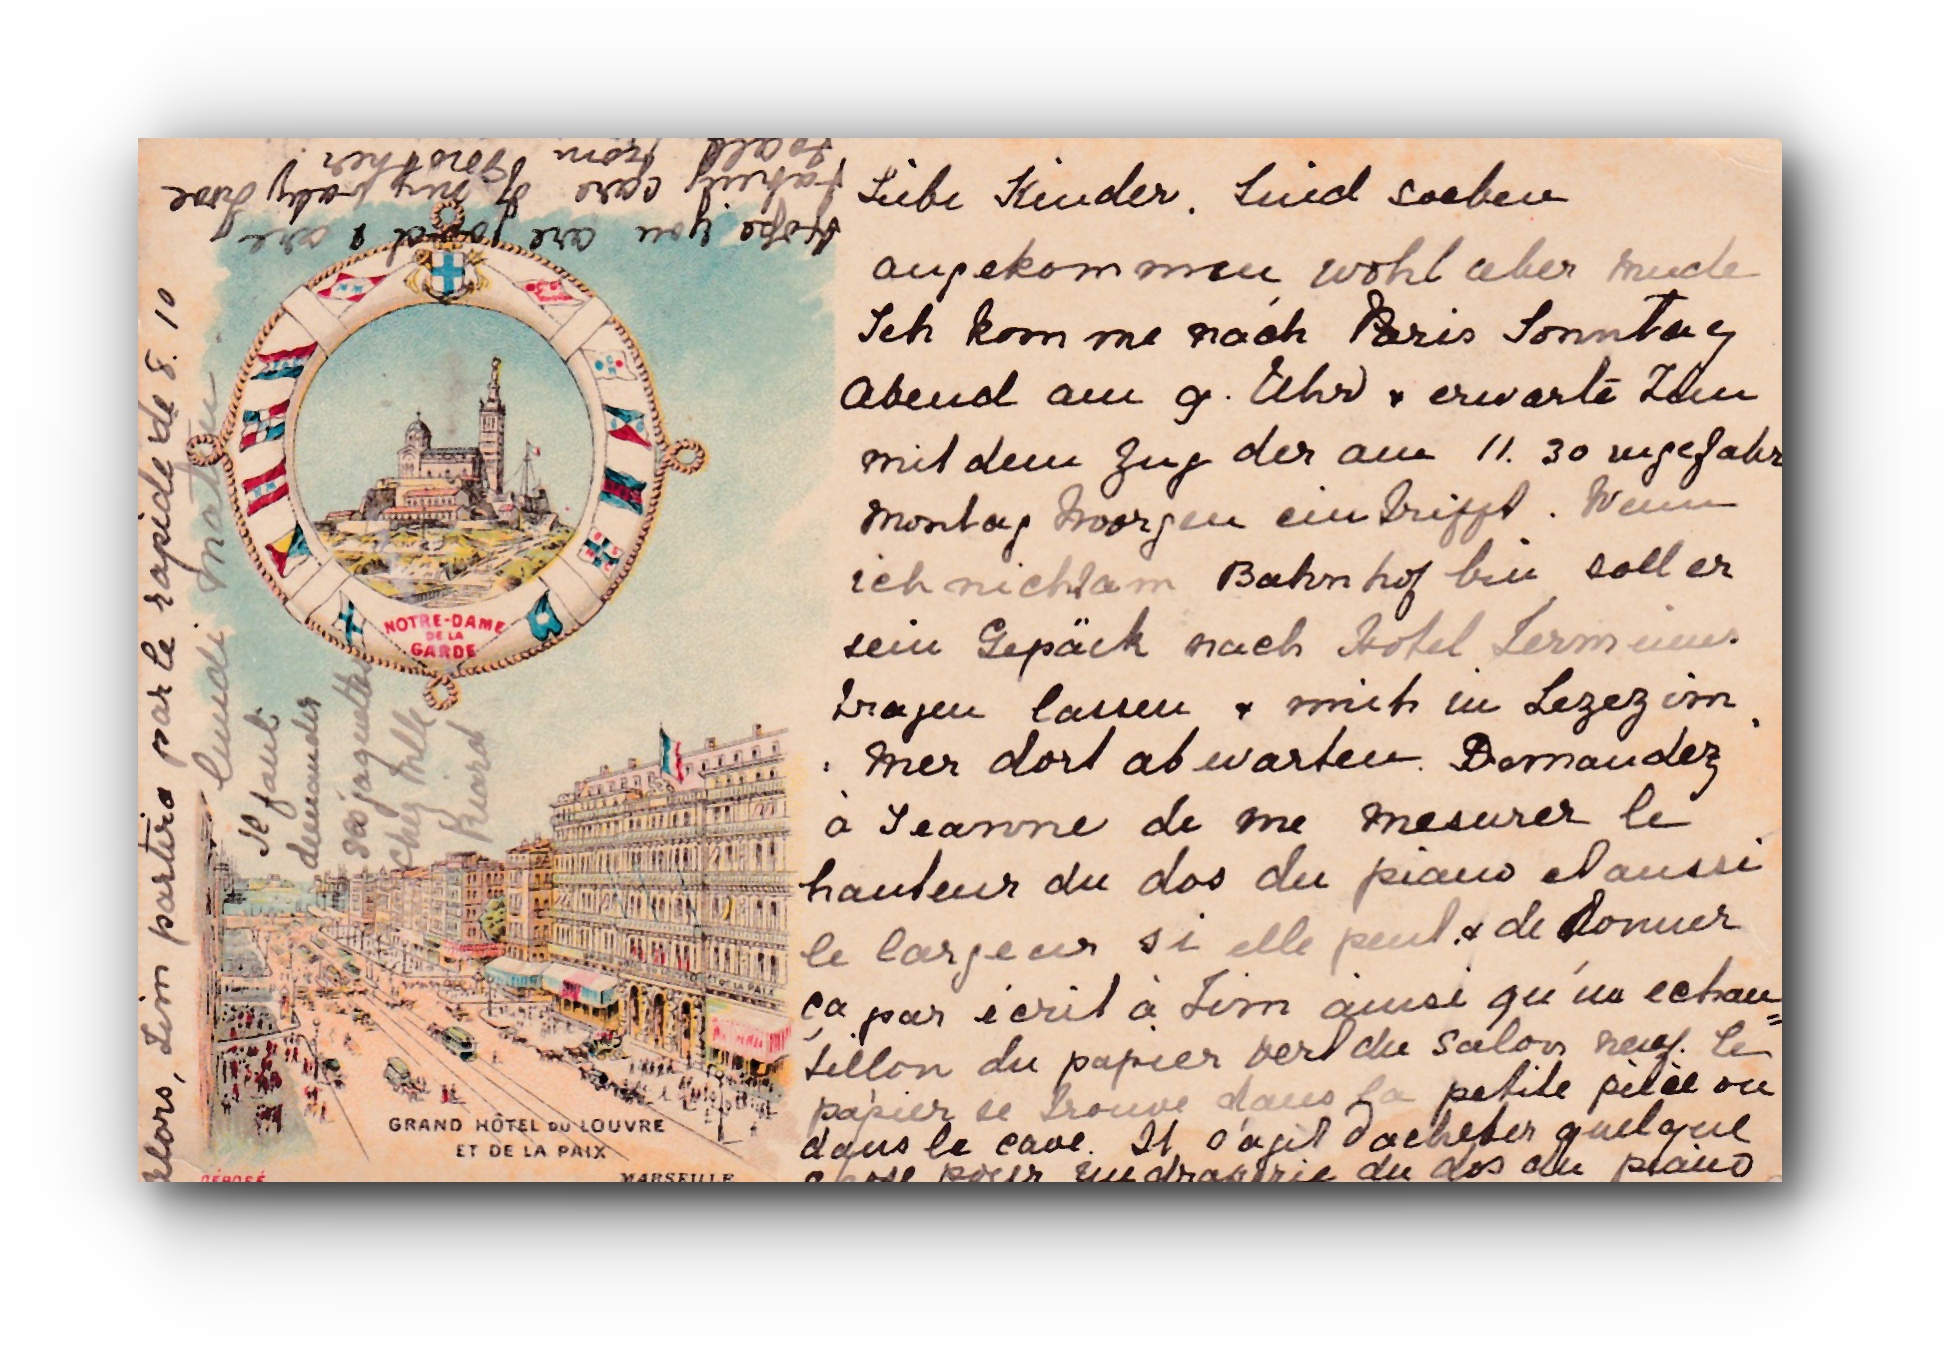 Liebe Kinder. Sind soeben
angekommen wohl aber mude
Ich komme nach Paris Sonntag
Abend am 9. Uhr & erwarte Jim
mit dem Zug der am 11.30 ungefahr
Montag Morgen eintrifft. Wenn
ich nicht am Bahnhof bin soll er
sein Gepäck nach Hotel Terminus
tragen lassen & mich in Lezezim
mer dort abwarten. Demandez
à Jeanne de me mesurer le
hauteur du dos du piano et aussi
le largeur si elle peut & de donner
ça par écrit à Jim ainsi qu'un echan=
tillon du papier vert du salon neuf. Le
papier se trouve dans la petite pièce ou
dans le cave. Il s'agit d'acheter quelque
chose pour un draperie du dos du piano
Alors, Jim partira par le rapide de 8.10
lundi matin
Il faut
demander
ses jaquettes
chez Mlle
Hope you are good & are
taking care of my baby
from Mother
NOTRE-DAME
DE LA
GARDE
GRAND HÔTEL DU LOUVRE
ET DE LA PAIX
MARSEILLE
DÉPOSÉ